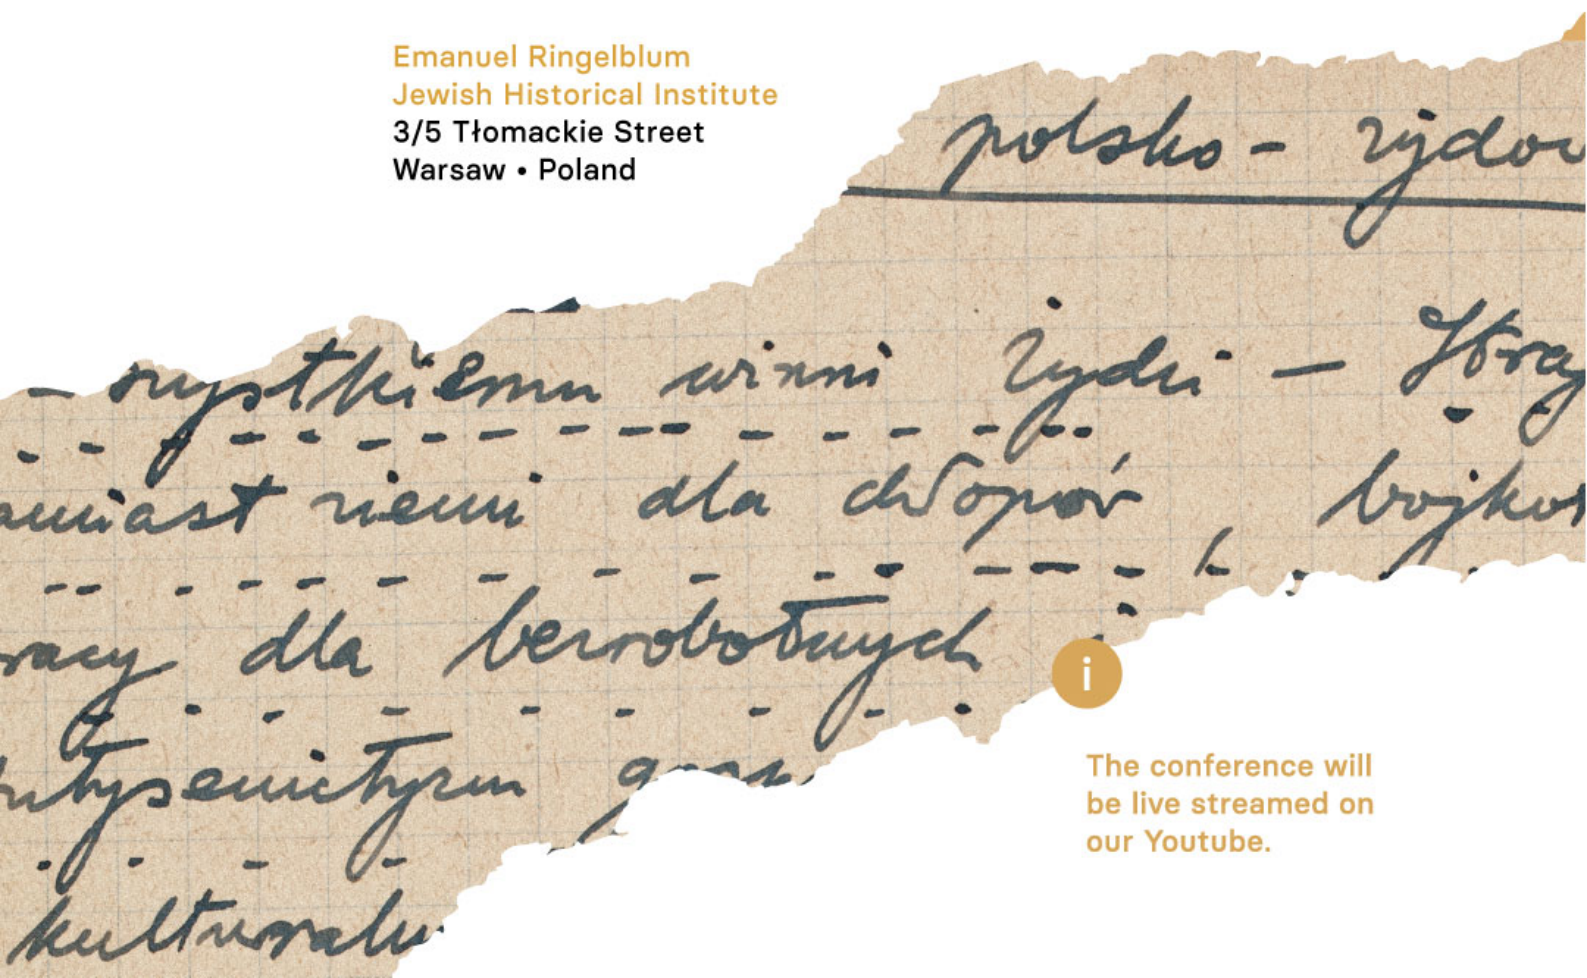 Emanuel Ringelblum
Jewish Historical Institute
3/5 Tłomackie Street
Warsaw • Poland
polsko - żydow
- wszystkiemu winni żydzi - Straj
amiast ziemi dla chłopów, bojkot
racy dla bezrobotnych
antysemityzm
kulturaln
i
The conference will
be live streamed on
our Youtube.